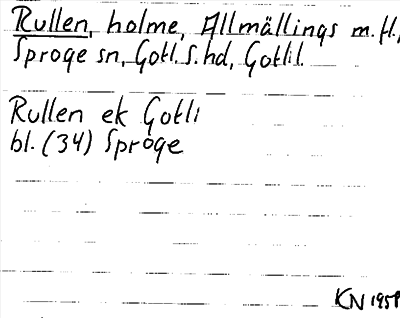 Rullen, holme, Allmällings m.fl.,
Sproge sn, Gotl. S. hd, Gotl.l.
Rullen ek Gotl
bl. (34) Sproge
KN 1958